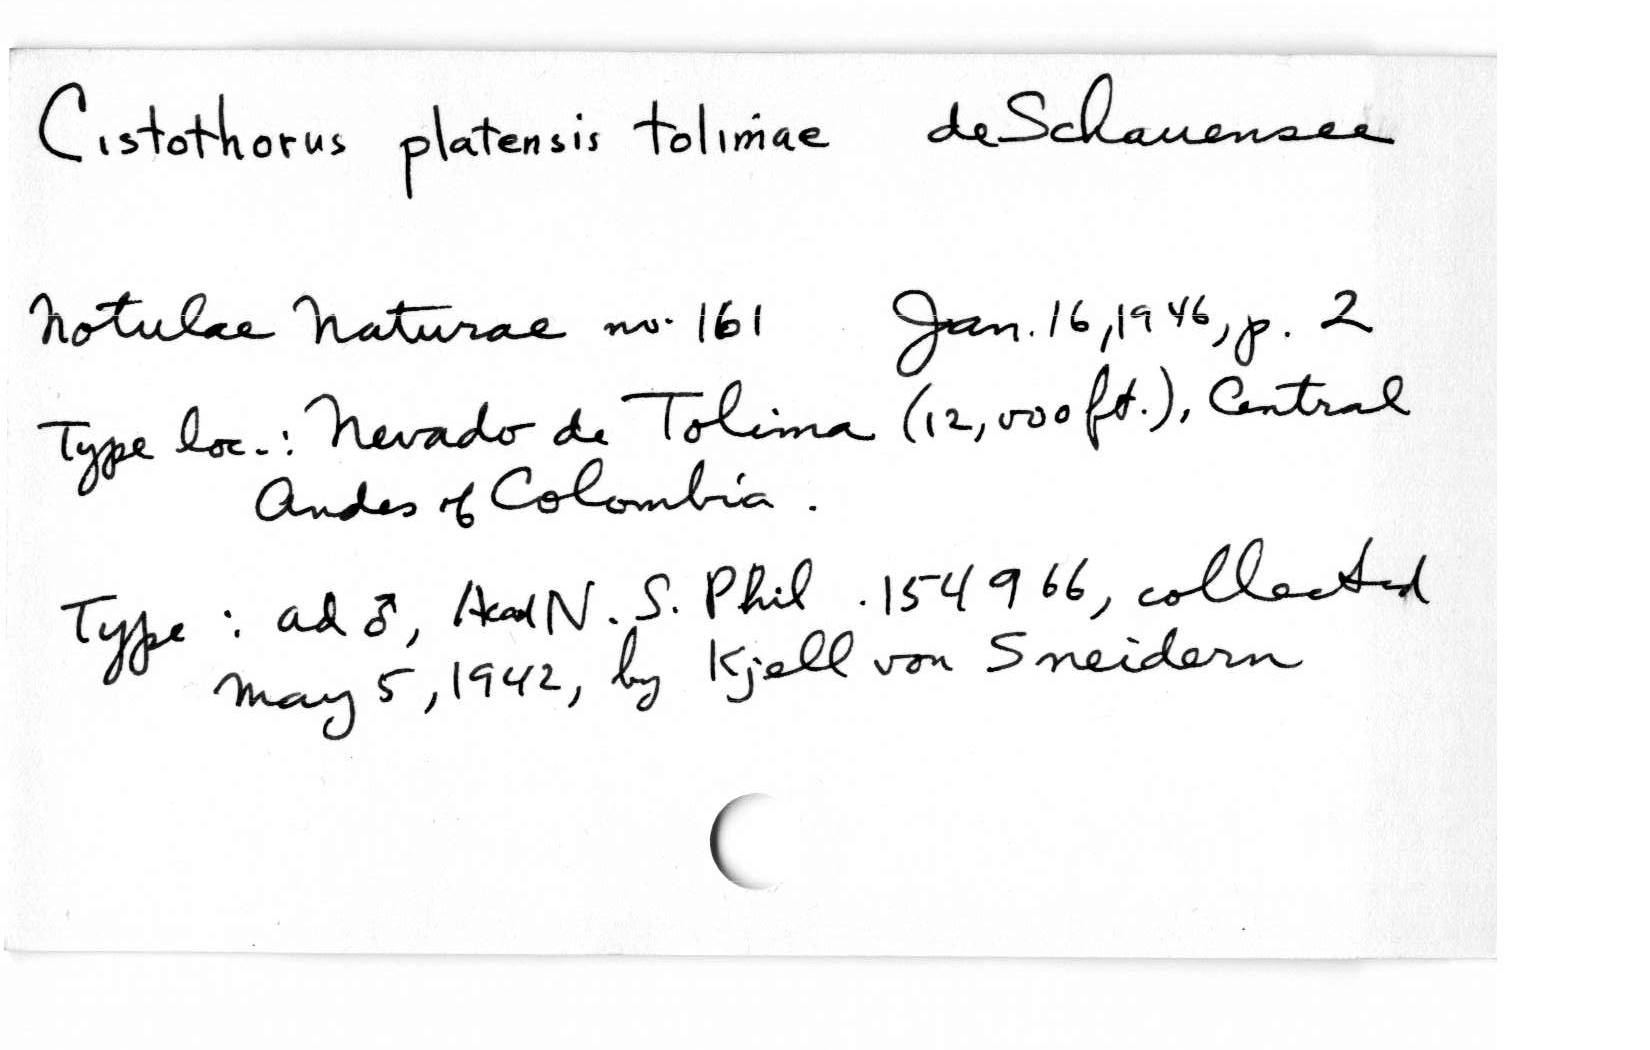 Cistothorus platensis tolimae deSchauensee
Notulae Naturae no. 161 Jan. 16, 1946, p. 2
Type loc.: Nevado de Tolima (12,000 ft.), Central
Andes of Colombia.
Type: ad ♂, Acad N. S. Phil. 154966, collected
May 5, 1942, by Kjell von Sneidern